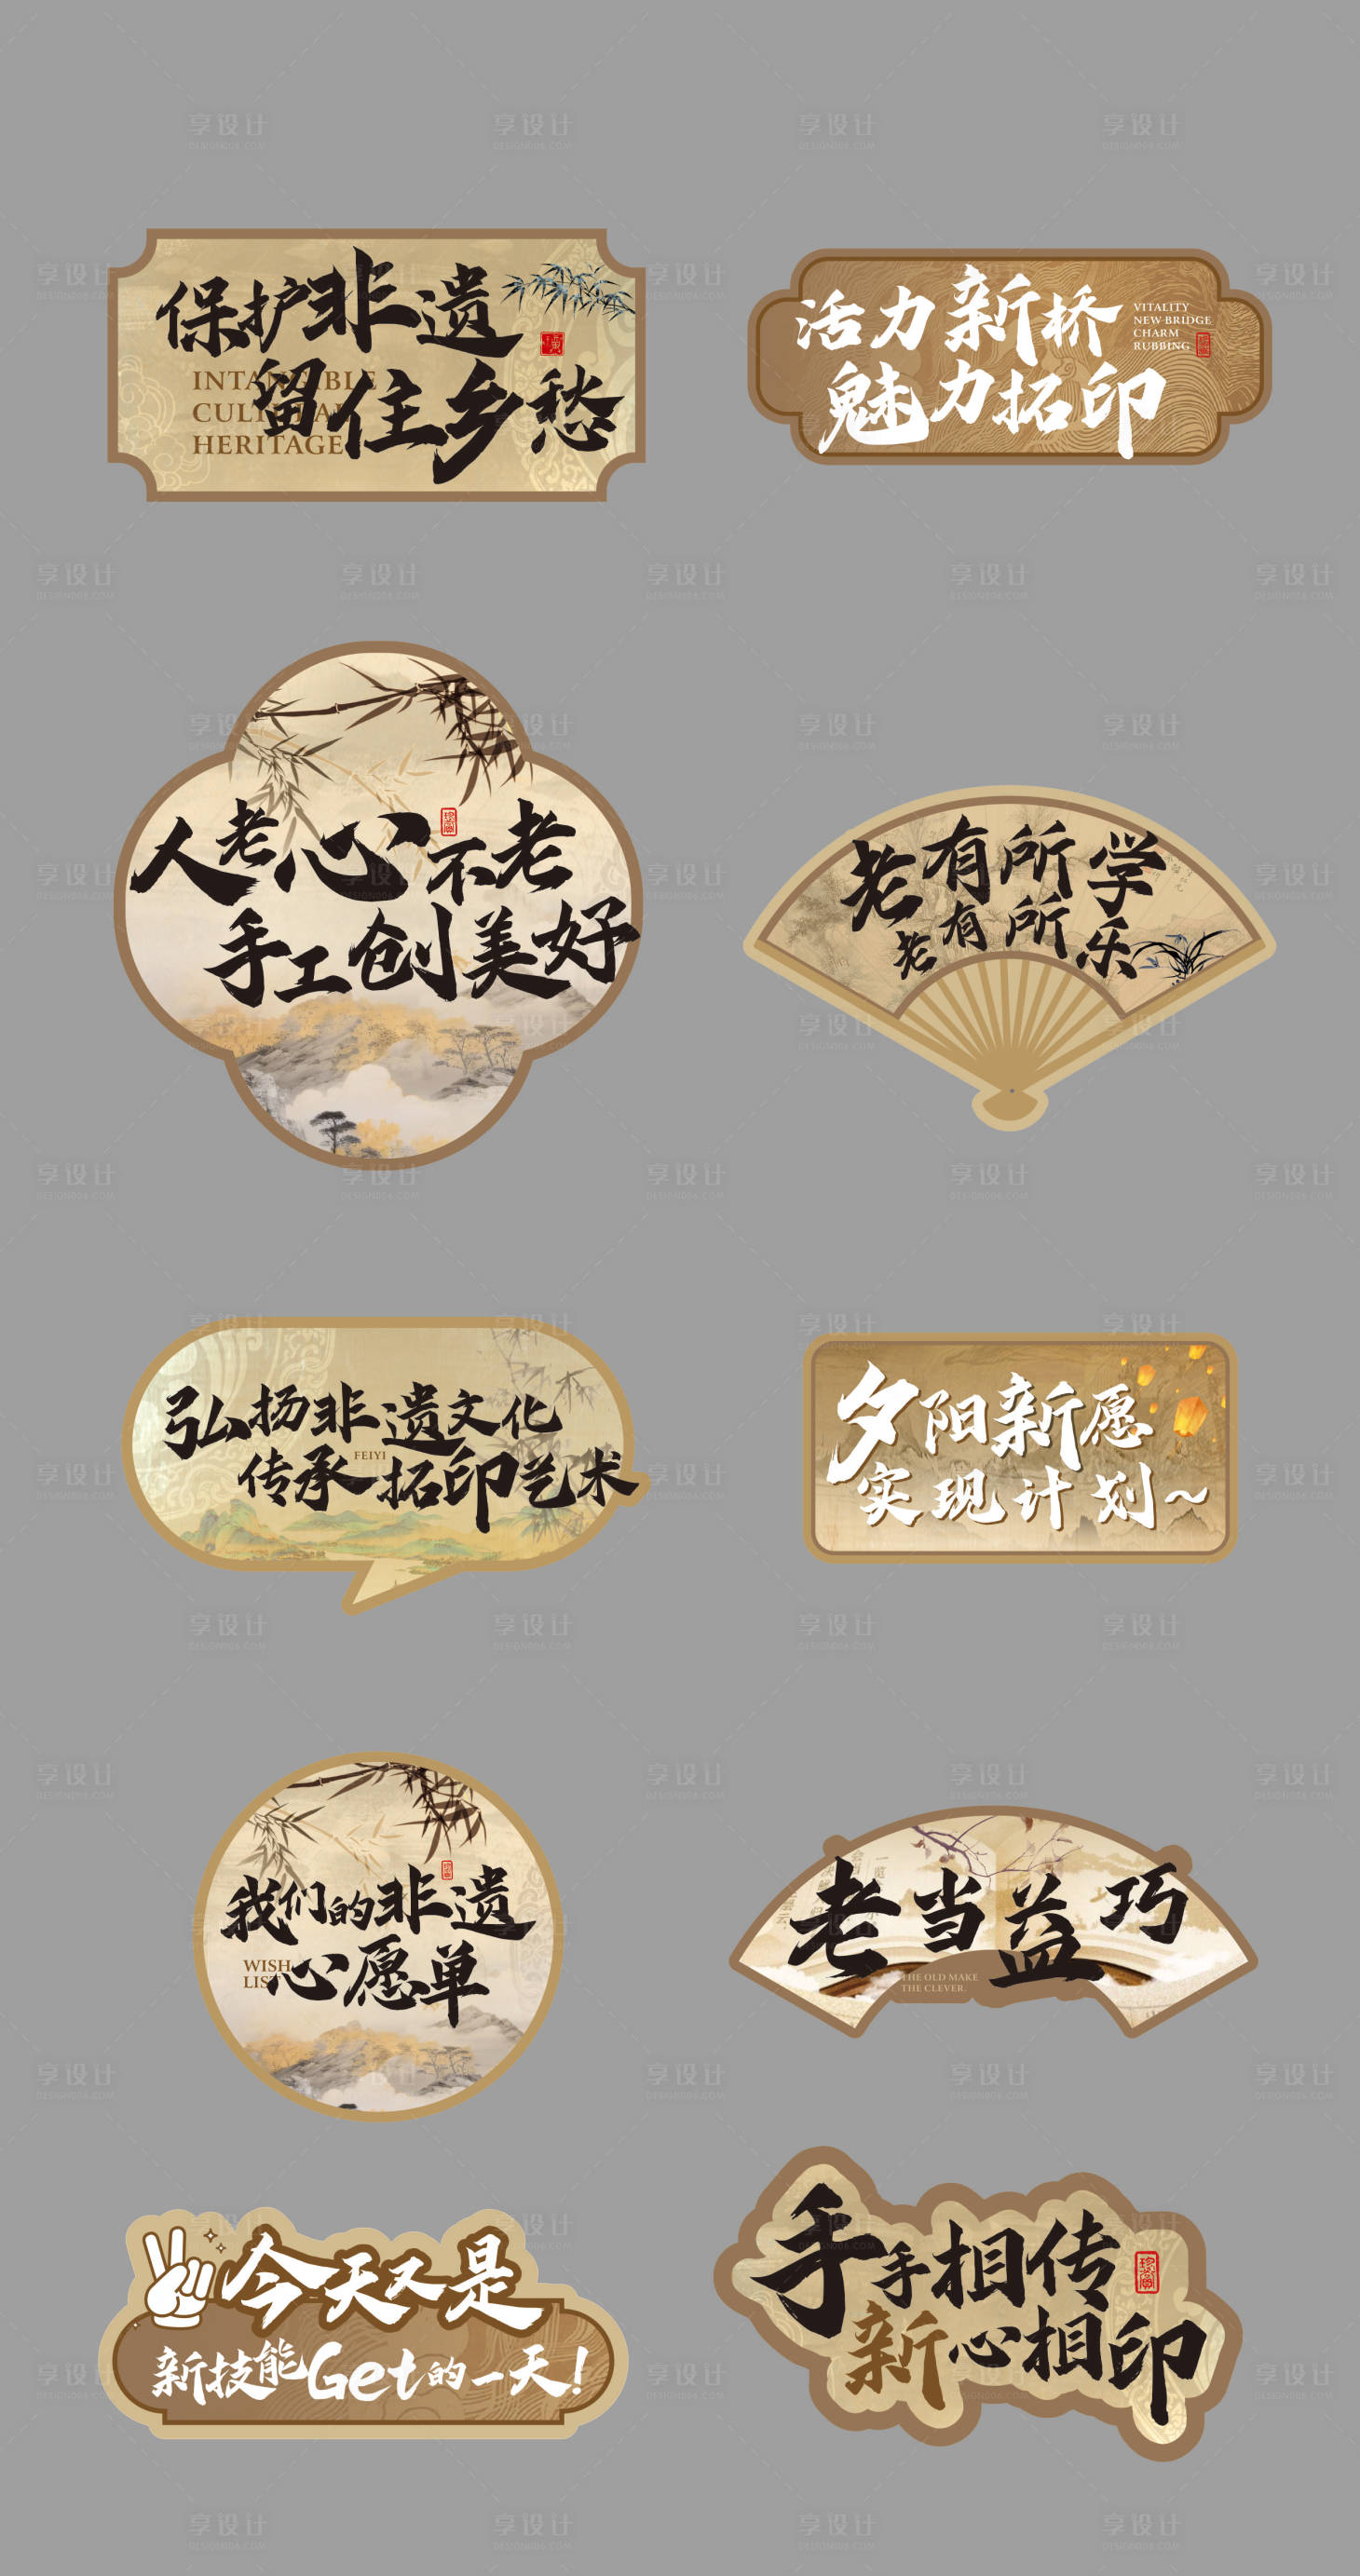 保护非遗
留住乡愁
INTANGIBLE
CULTURAL
HERITAGE
活力新桥
魅力拓印
VITALITY
NEW BRIDGE
CHARM
RUBBING
人老心不老
手工创美好
老有所学
老有所乐
弘扬非遗文化
传承拓印艺术
FEIYI
夕阳新愿
实现计划~
我们的非遗
心愿单
WISH
LIST
老当益巧
THE OLD MAKE
THE CLEVER.
今天又是
新技能Get的一天!
手手相传
新心相印
享设计
DESIGN006.COM